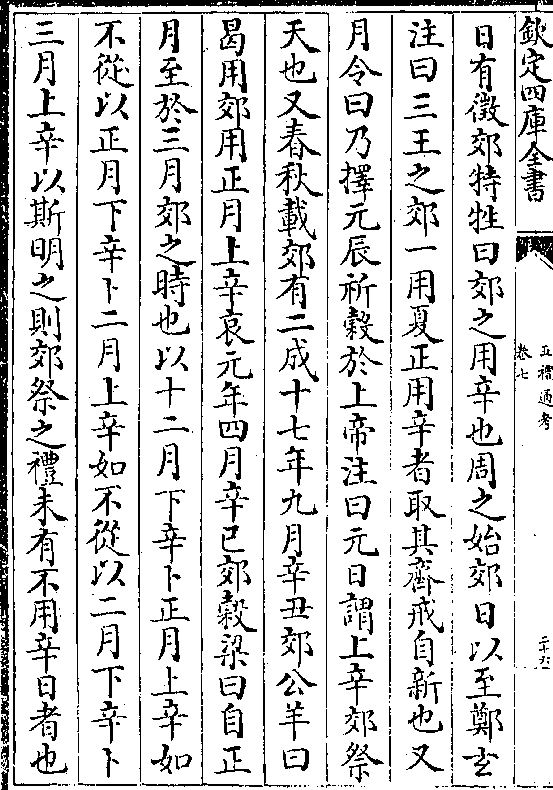 欽定四庫全書
五禮通考
卷七
二十六
日有徵郊特牲曰郊之用辛也周之始郊日以至鄭玄
注曰三王之郊一用夏正用辛者取其齋戒自新也又
月令曰乃擇元辰祈穀於上帝注曰元日謂上辛郊祭
天也又春秋載郊有二成十七年九月辛丑郊公羊曰
曷用郊用正月上辛哀元年四月辛巳郊穀梁曰自正
月至於三月郊之時也以十二月下辛卜正月上辛如
不從以正月下辛卜二月上辛如不從以二月下辛卜
三月上辛以斯明之則郊祭之禮未有不用辛日者也